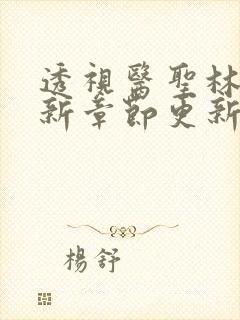 透視醫聖林
新章節更新
楊舒